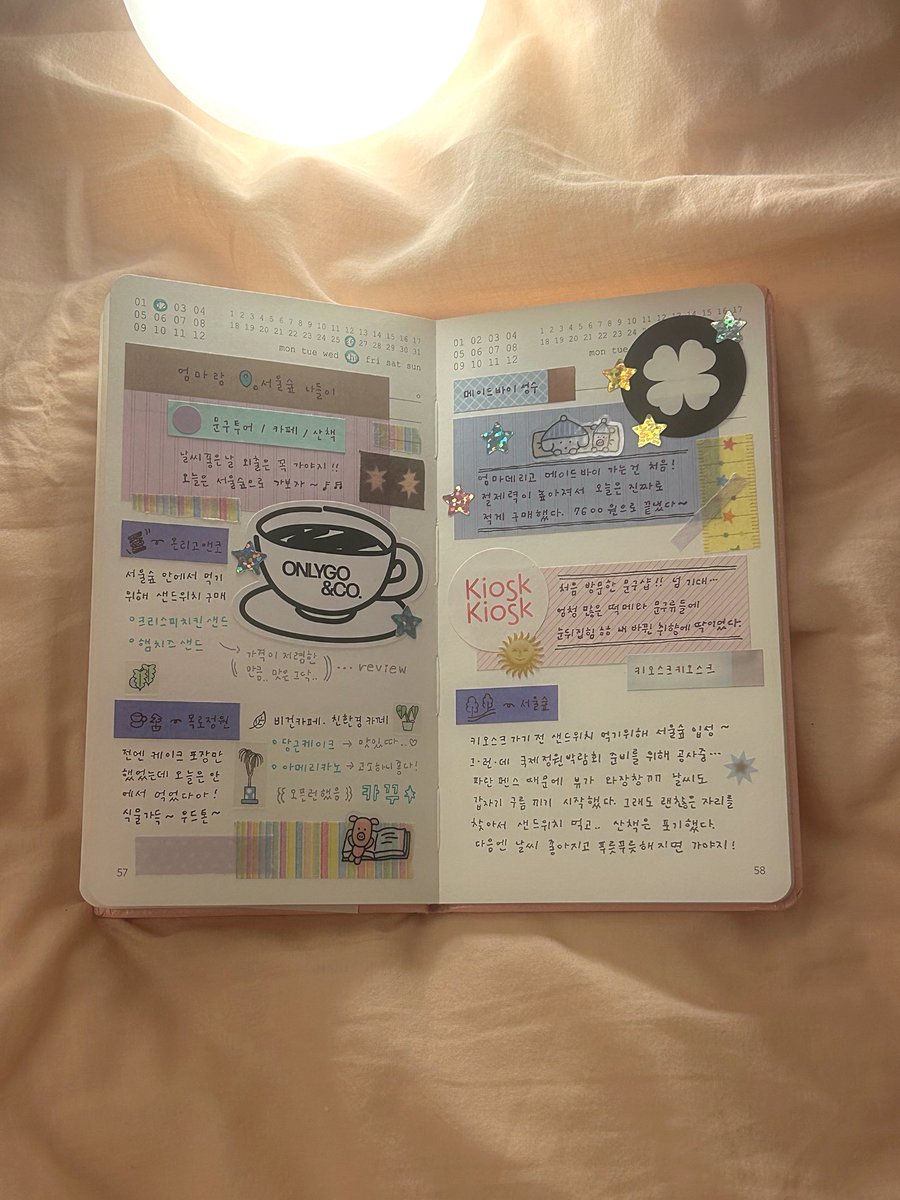 01 03 04
05 06 07 08
09 10 11 12
1 2 3 4 5 6 7 8 9 10 11 12 13 14 15 16 17
18 19 20 21 22 23 24 25 27 28 29 30 31
mon tue wed fri sat sun
엄마랑 서울숲 나들이
문구투어 / 카페 / 산책
날씨좋은날 외출은 꼭 가야지!!
오늘은 서울숲으로 가보자~♪♬
온리고앤코
서울숲 안에서 먹기
위해 샌드위치 구매
크리스피치킨 샌드
햄치즈 샌드
ONLYGO
&CO.
가격이 저렴한
만큼.. 맛은 그닥..
... review
목로정원
비건카페. 친환경 카페
전엔 케이크 포장만
했었는데 오늘은 안
에서 먹었다아!
식물가득~ 우드톤~
당근케이크 → 맛있따..♡
아메리카노 → 고소하니 좋아!
{{ 오픈런했음 }} 카꾸
57
01 02 03 04
05 06 07 08
09 10 11 12
1 2 3 4 5 6 7 8 9 10 11 12 13 14 15 16 17
18 19 20 21 22 23 24
mon tue
메이드바이 성수
엄마데리고 메이드바이 가는건 처음!
절제력이 높아져서 오늘은 진짜로
적게 구매했다. 7600원으로 끝냈다~
Kiosk
Kiosk
처음 방문한 문구샵!! 넘 기대...
엄청 많은 떡메라 문구류들에
눈뒤집힘 ㅎㅎ 내 바뀐 취향에 딱이었다.
키오스크키오스크
서울숲
키오스크 가기 전 샌드위치 먹기위해 서울숲 입성~
그·런·데 국제정원박람회 준비를 위해 공사중...
파란 펜스 때문에 뷰가 와장창ㄲㄲ 날씨도
갑자기 구름 끼기 시작했다. 그래도 괜찮은 자리를
찾아서 샌드위치 먹고.. 산책은 포기했다.
다음엔 날씨 좋아지고 푸릇푸릇해지면 가야지!
58